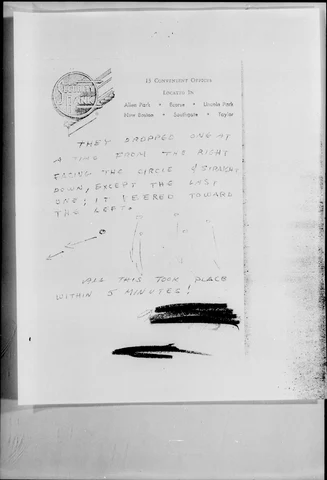 15 CONVENIENT OFFICES
LOCATED IN
Allen Park • Ecorse • Lincoln Park
New Boston • Southgate • Taylor
THEY DROPPED ONE AT
A TIME FROM THE RIGHT
FACING THE CIRCLE & STRAIGHT
DOWN, EXCEPT THE LAST
ONE; IT VEERED TOWARD
THE LEFT.
ALL THIS TOOK PLACE
WITHIN 5 MINUTES!